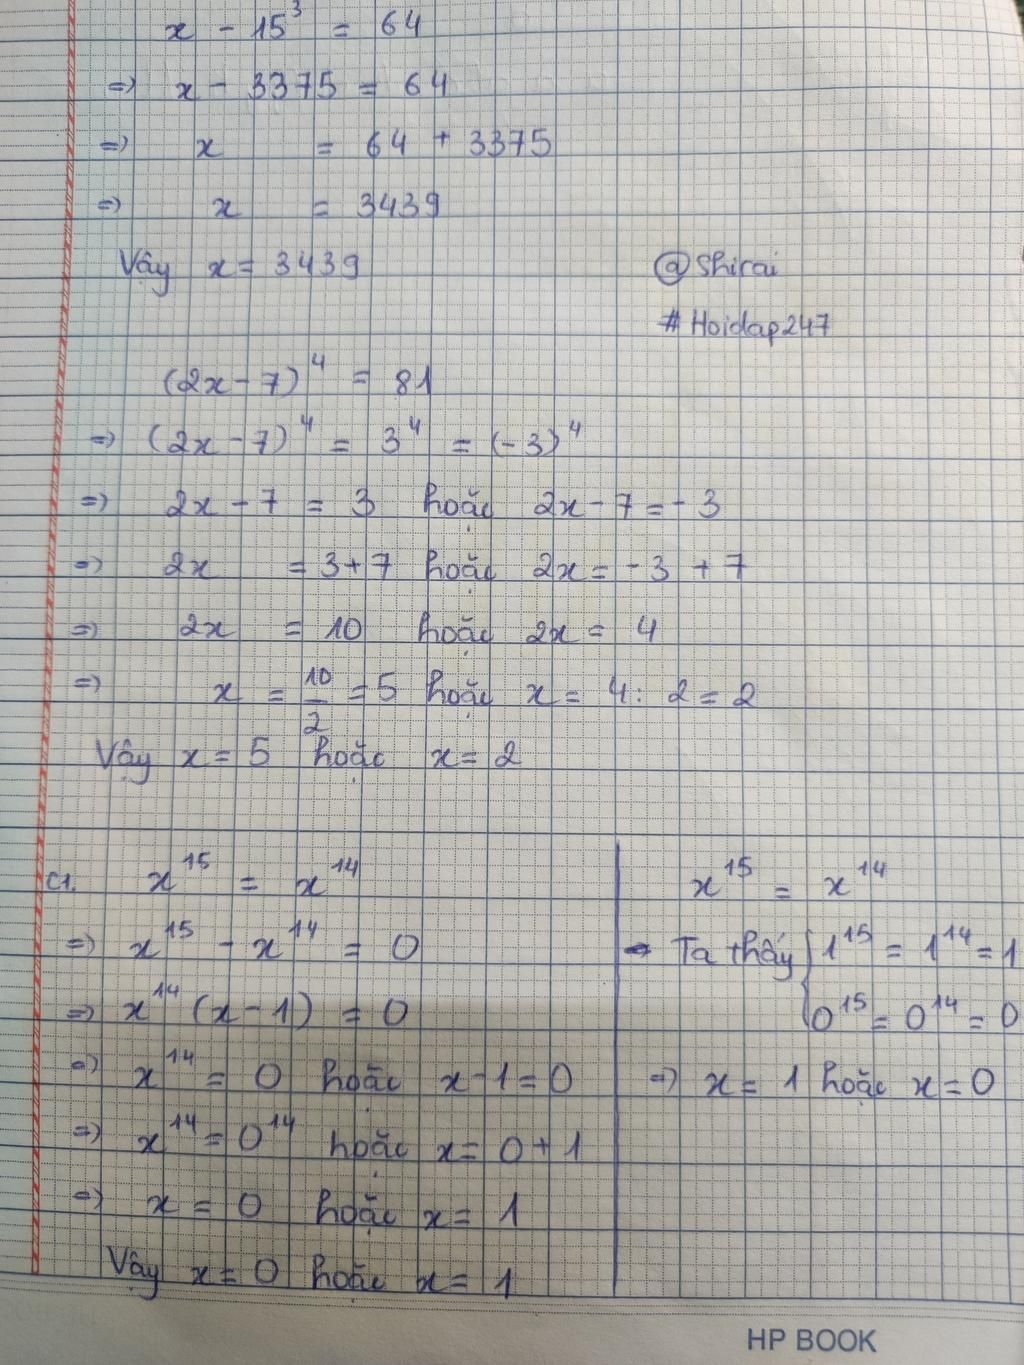 x - 15³ = 64
=> x - 3375 = 64
=> x = 64 + 3375
=> x = 3439
Vậy x = 3439
@Shirai
#Hoidap247
(2x - 7)⁴ = 81
=> (2x - 7)⁴ = 3⁴ = (-3)⁴
=> 2x - 7 = 3 hoặc 2x - 7 = -3
=> 2x = 3 + 7 hoặc 2x = -3 + 7
=> 2x = 10 hoặc 2x = 4
=> x = 10/2 = 5 hoặc x = 4 : 2 = 2
Vậy x = 5 hoặc x = 2
C1. x¹⁵ = x¹⁴
=> x¹⁵ - x¹⁴ = 0
=> x¹⁴ (x - 1) = 0
=> x¹⁴ = 0 hoặc x - 1 = 0
=> x¹⁴ = 0¹⁴ hoặc x = 0 + 1
=> x = 0 hoặc x = 1
Vậy x = 0 hoặc x = 1
x¹⁵ = x¹⁴
Ta thấy { 1¹⁵ = 1¹⁴ = 1
0¹⁵ = 0¹⁴ = 0
=> x = 1 hoặc x = 0
HP BOOK